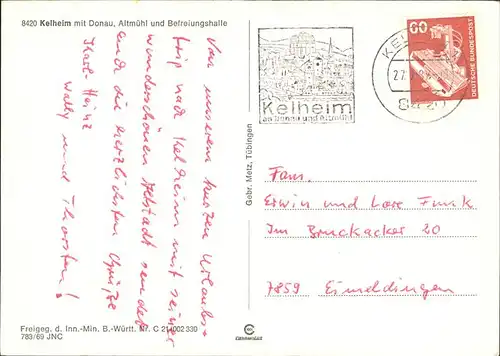 8420 Kelheim mit Donau, Altmühl und Befreiungshalle
Von unserem kurzen Urlaubs-
trip nach Kelheim mit seiner
wunderschönen Altstadt sendet
Euch die herzlichsten Grüße
Karl-Heinz
Wally und Thorsten!
Freigeg. d. Inn.-Min. B.-Württ. Nr. C 21 4002 330
783/69 JNC
Gebr. Metz, Tübingen
Kelheim
an Donau und Altmühl
60
DEUTSCHE BUNDESPOST
Fam.
Erwin und Lore Funk
Im Bruckacker 20
7859 Eimeldingen